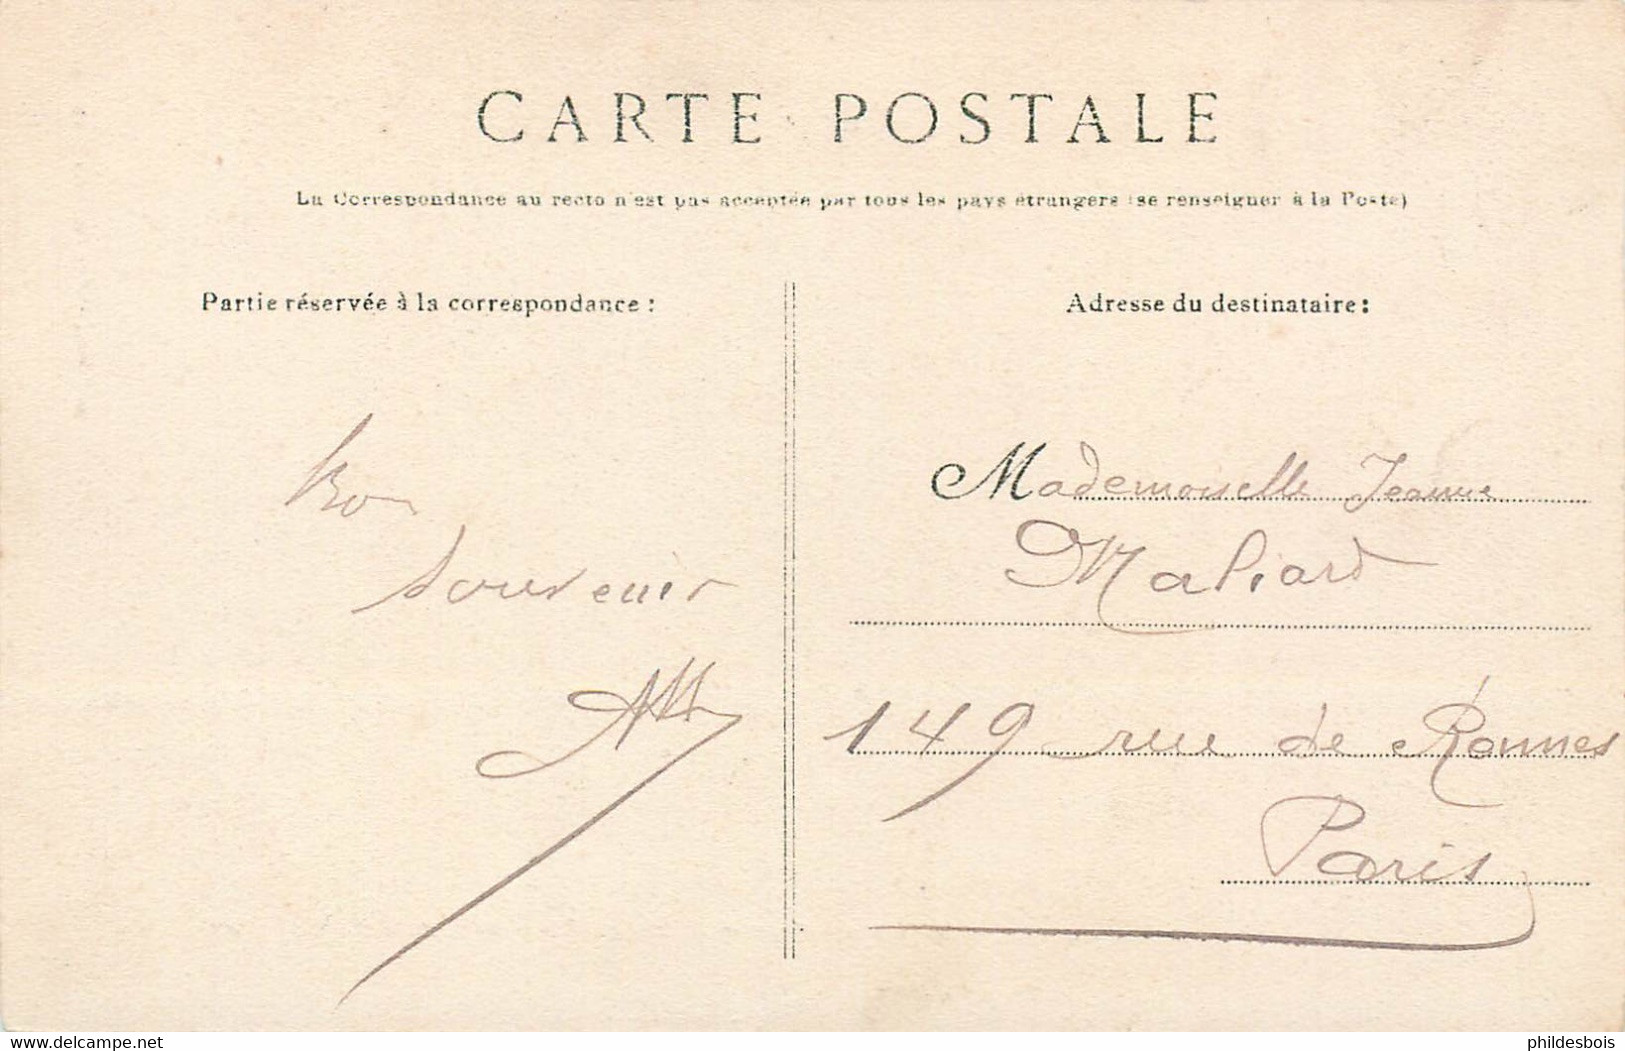 CARTE POSTALE
La Correspondance au recto n'est pas acceptée par tous les pays étrangers (se renseigner à la Poste)
Partie réservée à la correspondance :
Bon
souvenir
Adresse du destinataire :
Mademoiselle Jeanne
Maliard
149 rue de Rennes
Paris
www.delcampe.net
phildesbois